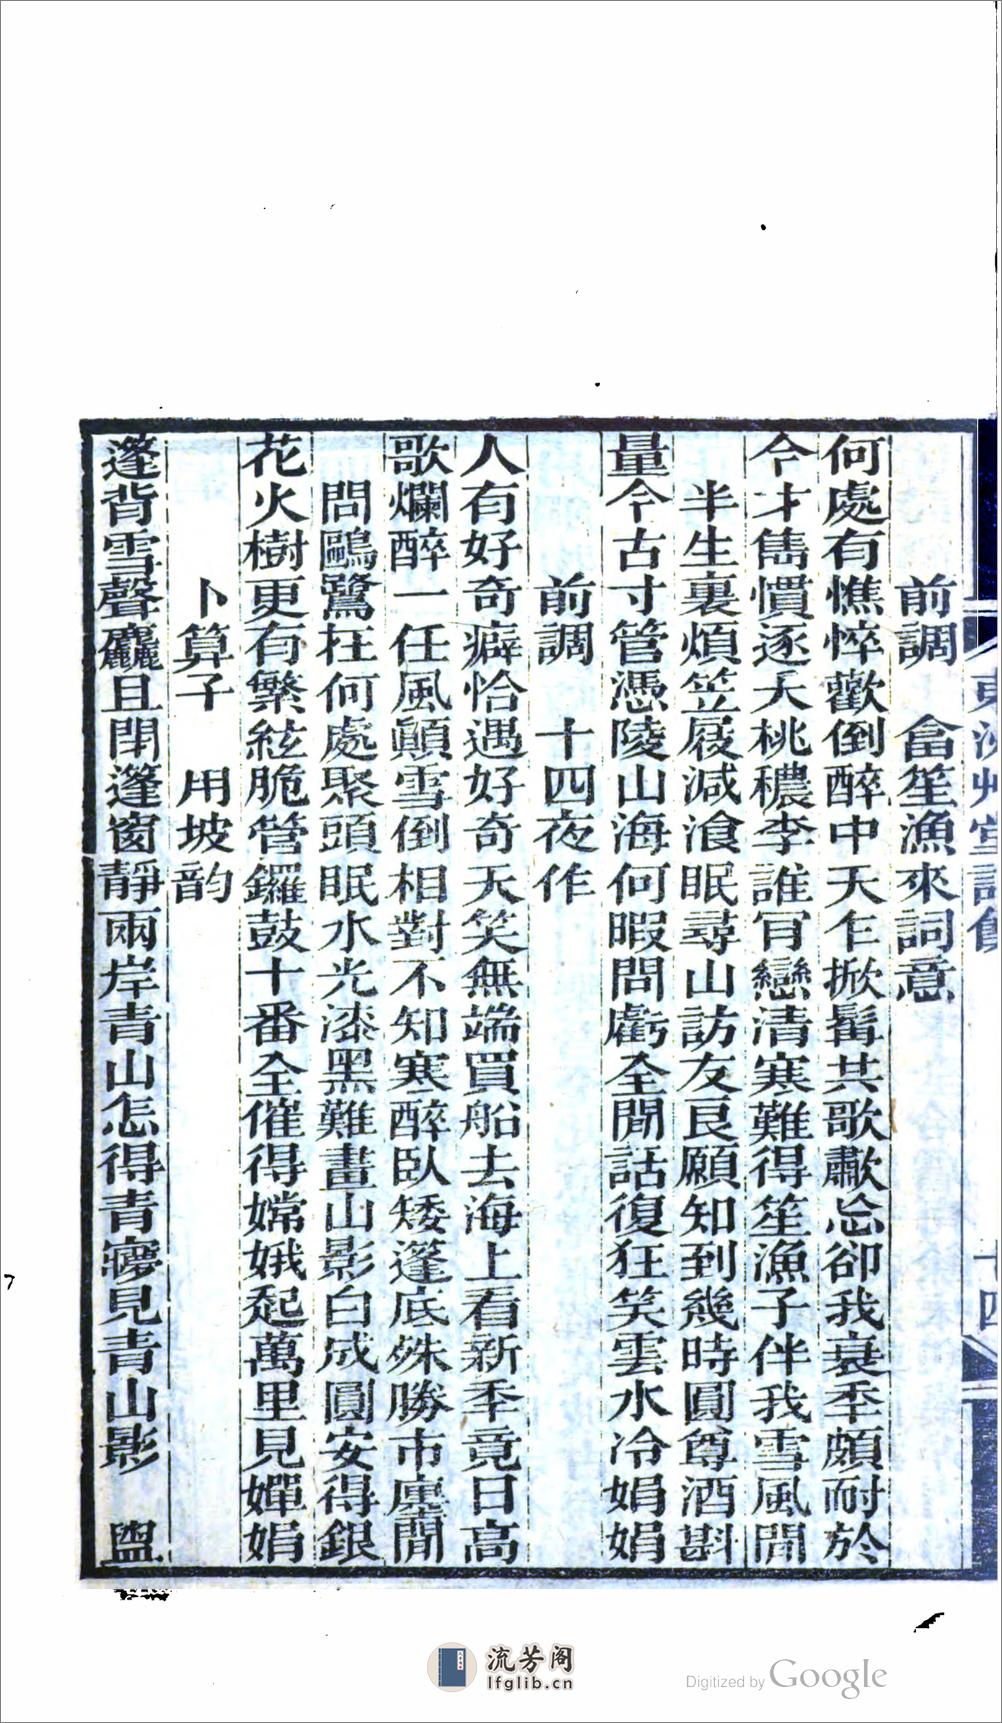 前調　畣笙漁來詞意
何處有憔悴歡倒醉中天乍掀髯共歌歗忘卻我衰秊頗耐於
今才雋慣逐夭桃穠李誰冐戀清寒難得笙漁子伴我雪風閒
半生裏煩笠屐減飡眠尋山訪友良願知到幾時圓尊酒斟
量今古寸管憑陵山海何暇問虧全閒話復狂笑雲水冷娟娟
前調　十四夜作
人有好奇癖恰遇好奇天笑無端買船去海上看新秊竟日高
歌爛醉一任風顚雪倒相對不知寒醉臥矮篷底殊勝市廛閒
問鷗鷺在何處聚頭眠水光漆黑難畫山影白成圓安得銀
花火樹更有繁絃脆管鑼鼓十番全催得嫦娥起萬里見嬋娟
卜算子　用坡韵
篷背雪聲麤且閉篷窗靜兩岸青山怎得青寱見青山影　盥
十四
流芳阁
lfglib.cn
Digitized by Google